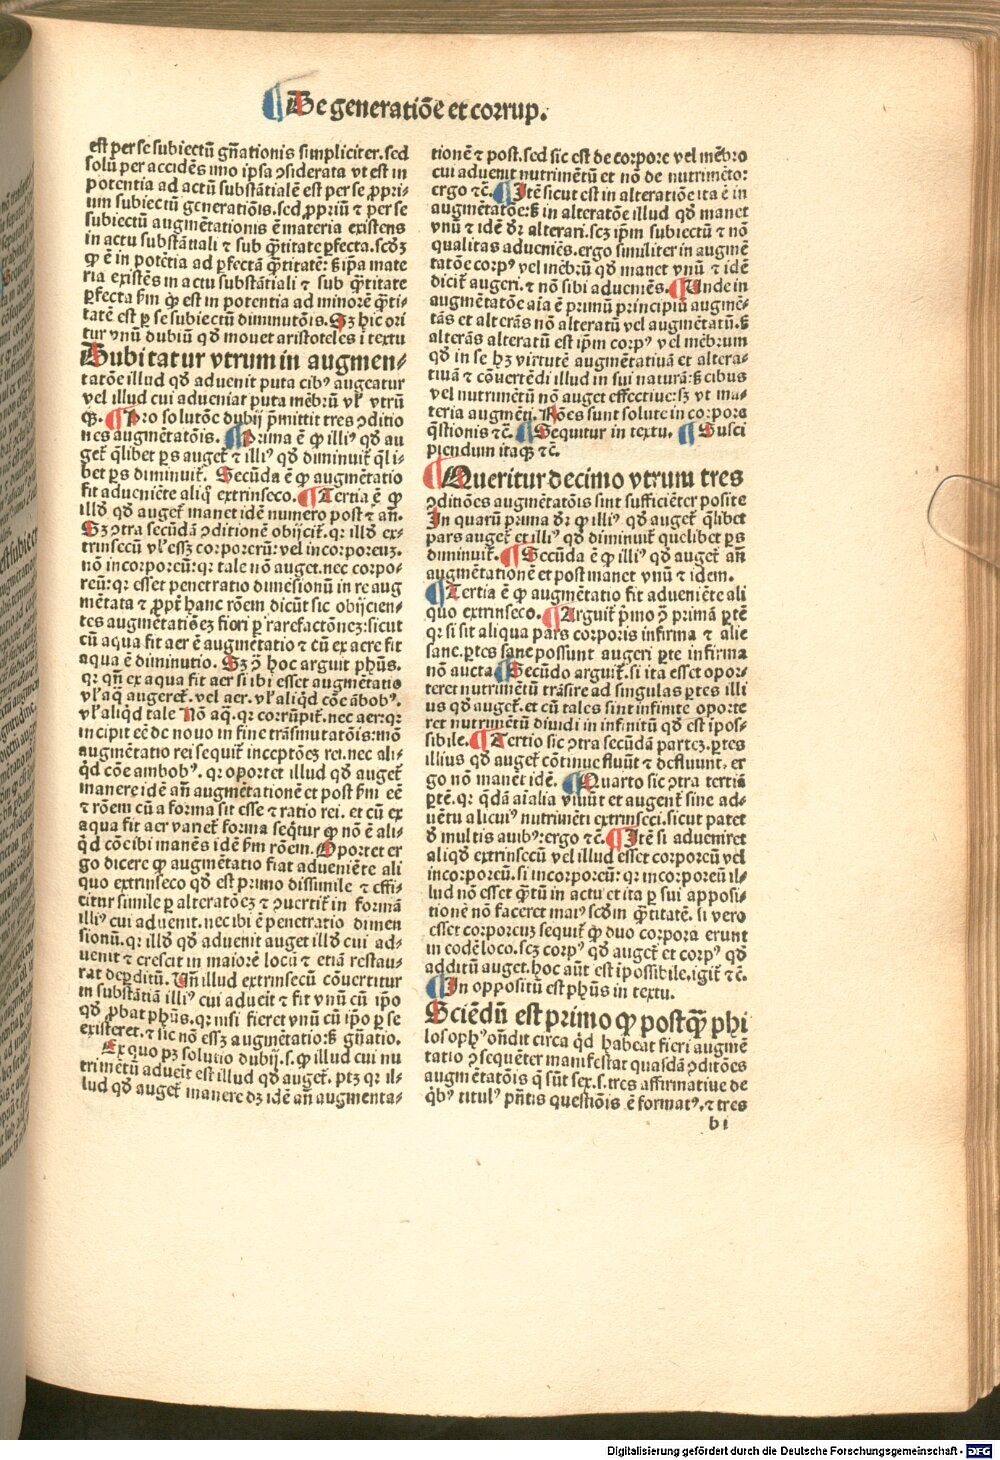 De generatiōe et corrup.
est per se subiectū gn̄ationis simpliciter. sed
solū per accidēs imo ipsa ꝯsiderata vt est in
potentia ad actū substātialē est per se ꝓpri-
um subiectū generatiōis. sed ꝓpriū ⁊ per se
subiectū augmētationis ē materia existens
in actu substātiali ⁊ sub q̄titate ꝑfecta. scꝺꝫ
ꝙ ē in potētia ad ꝑfectā q̄titatē: s̄ ip̄a mate
ria existēs in actu substātiali ⁊ sub q̄titate
ꝑfecta f̄m ꝙ est in potentia ad minorē q̄ti-
tatē est ꝑ se subiectū diminutōis. Sꝫ hic ori
tur vnū dubiū qđ mouet aristoteles i textu
Dubitatur vtrum in augmen-
tatōe illud qđ aduenit puta cibꝰ augeatur
vel illud cui adueniat puta mēbrū vl̓ vtrū
qꝫ. ¶ Pro solutōe dubij p̄mittit tres ꝯditio
nes augmētatōis. ¶ Prima ē ꝙ illiꝰ qđ au
get̄ q̄libet ps auget̄ ⁊ illiꝰ qđ diminuit̄ q̄li-
bet ps diminuit̄. Secūda ē ꝙ augmētatio
fit adueniēte aliq̊ extrinseco. ¶ Tertia ē ꝙ
illđ qđ auget̄ manet idē numero post ⁊ an̄.
Sꝫ ꝯtra secūdā ꝯditionē obijcit̄. qr illđ ex-
trinsecū vl̓ essꝫ corporerū: vel incorporeuꝫ.
nō incorporeū: qr tale nō auget. nec corpo-
reū: qr esset penetratio dimēsionū in re aug
mētata ⁊ ꝓpt̄ hanc rōem dicūt sic obijcien-
tes augmētatiōeꝫ fiori ꝑ rarefactōneꝫ: sicut
cū aqua fit aer ē augmētatio ⁊ cū ex aere fit
aqua ē diminutio. Sꝫ ꝯ̄ hoc arguit ph̄us.
qr qn̄ ex aqua fit aer si ibi esset augmētatio
vl̓ aq̄ augeret̄. vel aer. vl̓ aliqđ cōe ābobꝰ.
vl̓ aliqđ tale Nō aq̄. qr corrūpit̄. nec aer: qr
incipit eē de nouo in fine trāsmutatōis: mō
augmētatio rei sequit̄ inceptōeꝫ rei. nec ali-
qđ cōe ambobꝰ. qr oportet illud qđ auget̄
manere idē an̄ augmētationē et post f̄m eē
⁊ rōem cū a forma sit esse ⁊ ratio rei. et cū ex
aqua fit aer vanet̄ forma seq̄tur ꝙ nō ē ali-
qđ cōe ibi manēs idē f̄m rōem. Oportet er
go dicere ꝙ augmētatio fiat adueniēte ali
quo extrinseco qđ est primo dissimile ⁊ effi-
citur simile ꝑ alteratōeꝫ ⁊ ꝯuertit̄ in formā
illiꝰ cui aduenit. nec ibi ē penetratio dimen
sionū. qr illđ qđ aduenit auget illđ cui ad-
uenit ⁊ crescit in maiorē locū ⁊ etiā restau-
rat deꝑditū. Un̄ illud extrinsecū cōuertitur
in substātiā illiꝰ cui adueit ⁊ fit vnū cū ip̄o
qđ ꝓbat ph̄us. qr nisi fieret vnū cū ip̄o ꝑ se
existeret. ⁊ sic nō essꝫ augmētatio: s̄ gn̄atio.
Ex quo pꝫ solutio dubij. s. ꝙ illud cui nu
trimētū adueit est illud qđ auget̄. ptꝫ qr il-
lud qđ auget̄ manere dꝫ idē an̄ augmenta-
tionē ⁊ post. sed sic est de corpore vel mēbro
cui aduenit nutrimētū et nō de nutrimēto:
ergo ⁊c̄. ¶ Itē sicut est in alteratiōe ita ē in
augmētatōe: s̄ in alteratōe illud qđ manet
vnū ⁊ idē dr̄ alterari. scꝫ ip̄m subiectū ⁊ nō
qualitas adueniēs. ergo similiter in augmē
tatōe corpꝰ vel mēbrū qđ manet vnū ⁊ idē
dicit̄ augeri. ⁊ nō sibi adueniēs. ¶ Unde in
augmētatōe aīa ē primū principiū augmē-
tās et alterās nō alteratū vel augmētatū. s̄
alterās alteratū est ip̄m corpꝰ vel mēbrum
qđ in se hꝫ virtutē augmētatiuā et altera-
tiuā ⁊ cōuertēdi illud in sui naturā: s̄ cibus
vel nutrimētū nō auget effectiue: sꝫ vt ma-
teria augmēti. Rōes sunt solute in corpore
q̄stionis ⁊c̄. ¶ Sequitur in textu. ¶ Susci
piendum itaqꝫ ⁊c̄.
¶ Queritur decimo vtrum tres
ꝯditiōes augmētatōis sint sufficiēter posite
In quarū prima dr̄ ꝙ illiꝰ qđ auget̄ q̄libet
pars auget̄ et illiꝰ qđ diminuit̄ quelibet ps
diminuit̄. ¶ Secūda ē ꝙ illiꝰ qđ auget̄ an̄
augmētationē et post manet vnū ⁊ idem.
¶ Tertia ē ꝙ augmētatio fit adueniēte ali
quo extrinseco. ¶ Arguit̄ p̄mo ꝯ̄ primā ꝑtē
qr si sit aliqua pars corporis infirma ⁊ alie
sane. ꝑtes sane possunt augeri ꝑte infirma
nō aucta ¶ Secūdo arguit̄. si ita esset opor-
teret nutrimētū trāsire ad singulas ꝑtes illi
us qđ auget̄. et cū tales sint infinite oporte
ret nutrimētū diuidi in infinitū qđ est ipos-
sibile. ¶ Tertio sic ꝯtra secūdā parteꝫ. ꝑtes
illius qđ auget̄ cōtinue fluūt ⁊ defluunt. er
go nō manet idē. ¶ Quarto sic ꝯtra tertiā
ꝑtē. qr q̄dā aīalia viuūt et augent̄ sine ad-
uētu alicuiꝰ nutrimēti extrinseci. sicut patet
đ multis auibꝰ: ergo ⁊c̄. ¶ Itē si adueniret
aliqđ extrinsecū vel illud esset corporeū vel
incorporeū. si incorporeū: qr incorporeū il-
lud nō esset q̄tū in actu et ita ꝑ sui apposi-
tionē nō faceret maiꝰ scđm q̄titatē. si vero
esset corporeuꝫ sequit̄ ꝙ duo corpora erunt
in codē loco. scꝫ corpꝰ qđ auget̄ et corpꝰ qđ
additū auget. hoc aūt est ipossibile. igit̄ ⁊c̄.
¶ In oppositū est ph̄us in textu.
Sciēdū est primo ꝙ postq̄ꝫ phi
losophꝰ on̄dit circa qđ habeat fieri augmē
tatio ꝯsequēter manifestat quasdā ꝯditōes
augmētatōis q̄ sūt sex. s. tres affirmatiue de
q̊bꝰ titulꝰ pn̄tis questiōis ē formatꝰ. ⁊ tres
b i
Digitalisierung gefördert durch die Deutsche Forschungsgemeinschaft - DFG